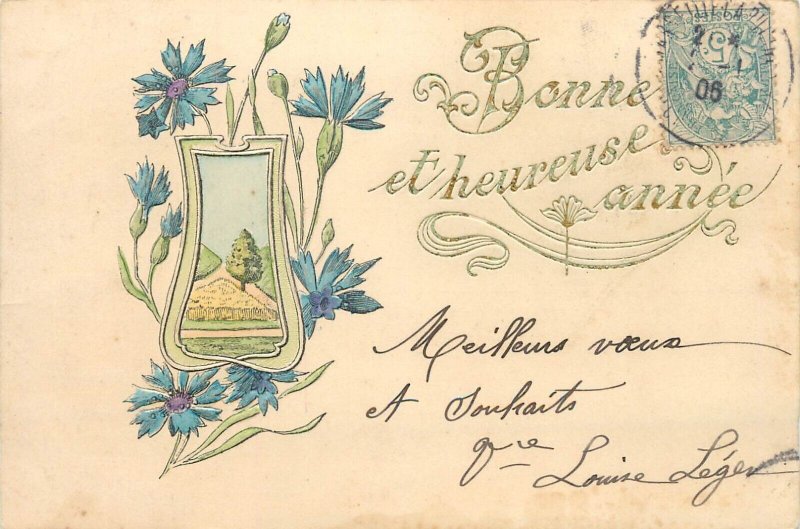 Bonne
et heureuse
année
POSTES
5c
06
Meilleurs vœux
et Souhaits
Louise Léger